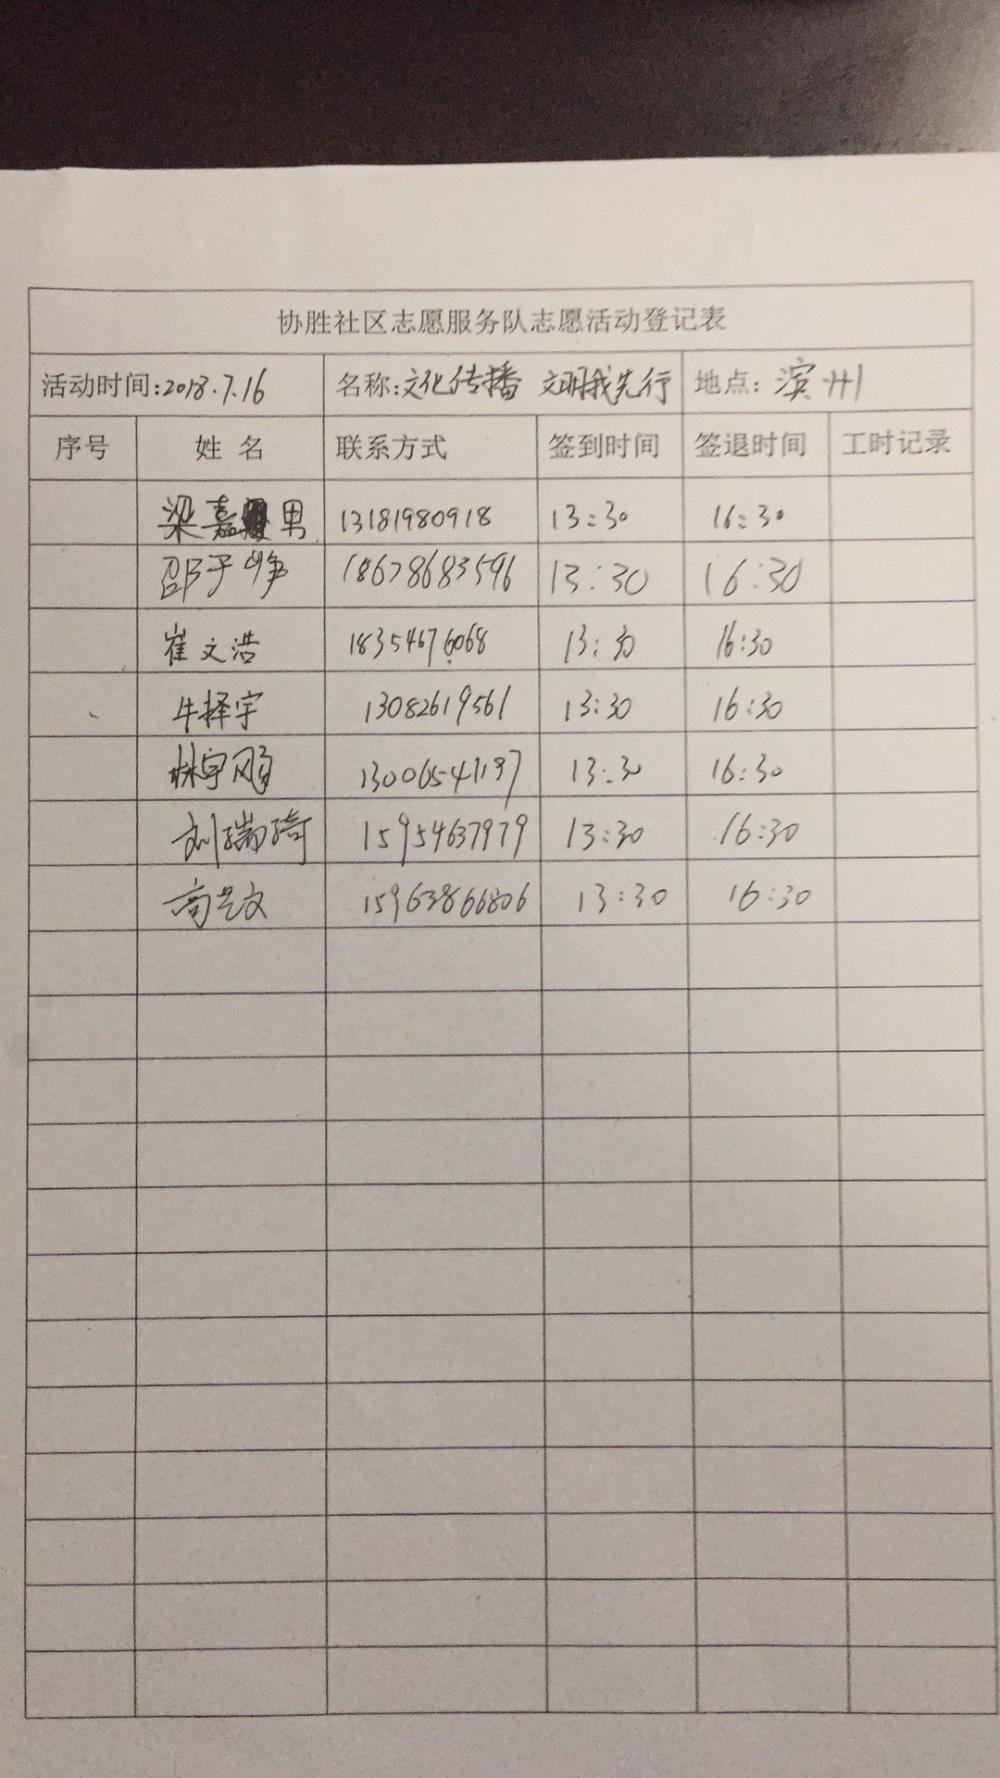 协胜社区志愿服务队志愿活动登记表
活动时间:2018.7.16 名称:文化传播 文明我先行 地点:滨州
序号 姓名 联系方式 签到时间 签退时间 工时记录
梁嘉男 13181980918 13:30 16:30
邵子峥 18678683596 13:30 16:30
崔文浩 18354676068 13:30 16:30
牛择宇 13082619561 13:30 16:30
林宇 13006547197 13:30 16:30
刘瑞琦 15954637979 13:30 16:30
高艺文 15963866806 13:30 16:30